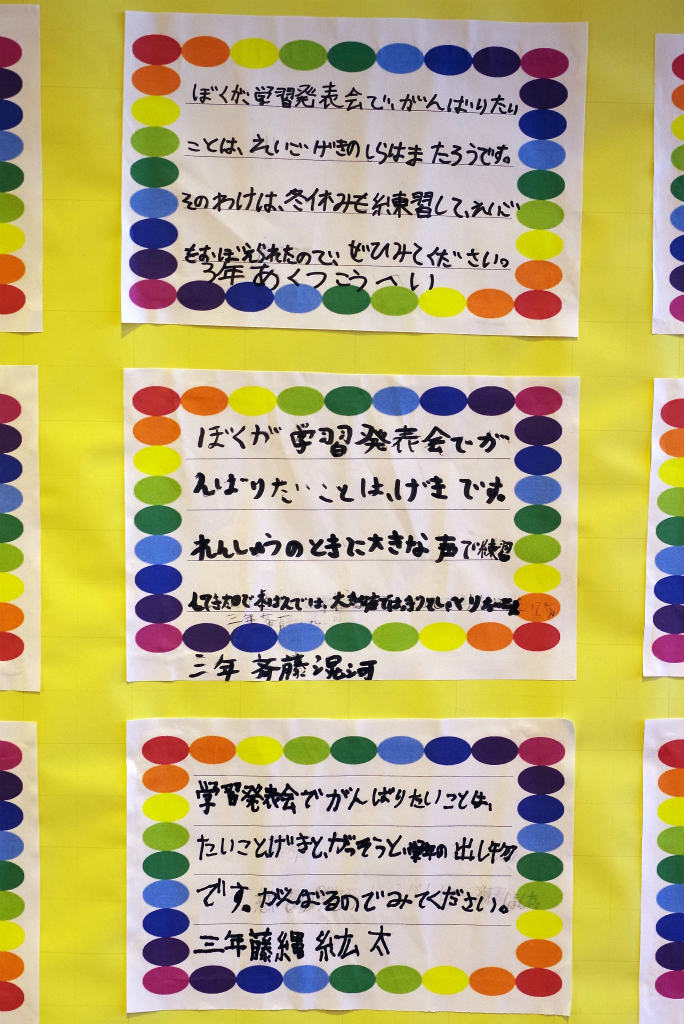 ぼくが、学習発表会で、がんばりたい
ことは、えいごげきのしらはまたろうです。
そのわけは、冬休みも練習して、えいご
もおぼえられたので、ぜひみてください。
3年あくつこうへい
ぼくが学習発表会でが
んばりたいことは、げきです。
れんしゅうのときに大きな声で練習
してきたので本ばんでは、大きな声では、きり
三年 斉藤滉河
学習発表会でがんばりたいことは、
たいことげきと、がっそうと、学年の出し物
です。がんばるのでみてください。
三年藤縄紘太